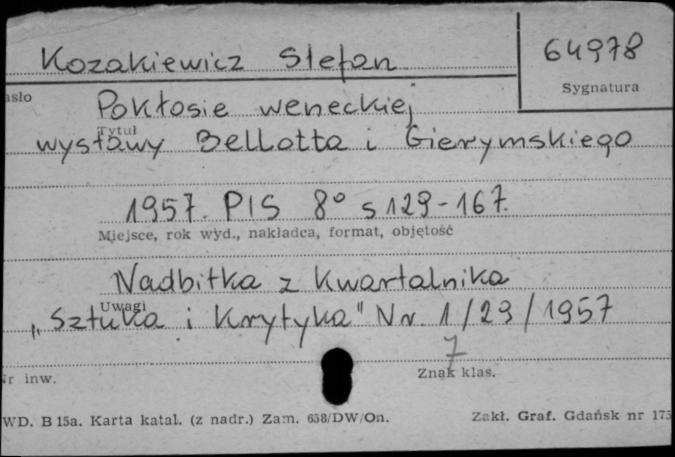 Kozakiewicz Stefan
64978
Sygnatura
asło
Pokłosie weneckiej
Tytuł
wystawy Bellotta i Gierymskiego
1957. PIS 8° s 129-167.
Miejsce, rok wyd., nakładca, format, objętość
Nadbitka z Kwartalnika
Uwagi
„Sztuka i Krytyka" Nr. 1/29/1957
7
Nr inw.
Znak klas.
WD. B 15a. Karta katal. (z nadr.) Zam. 658/DW/On.
Zakł. Graf. Gdańsk nr 175